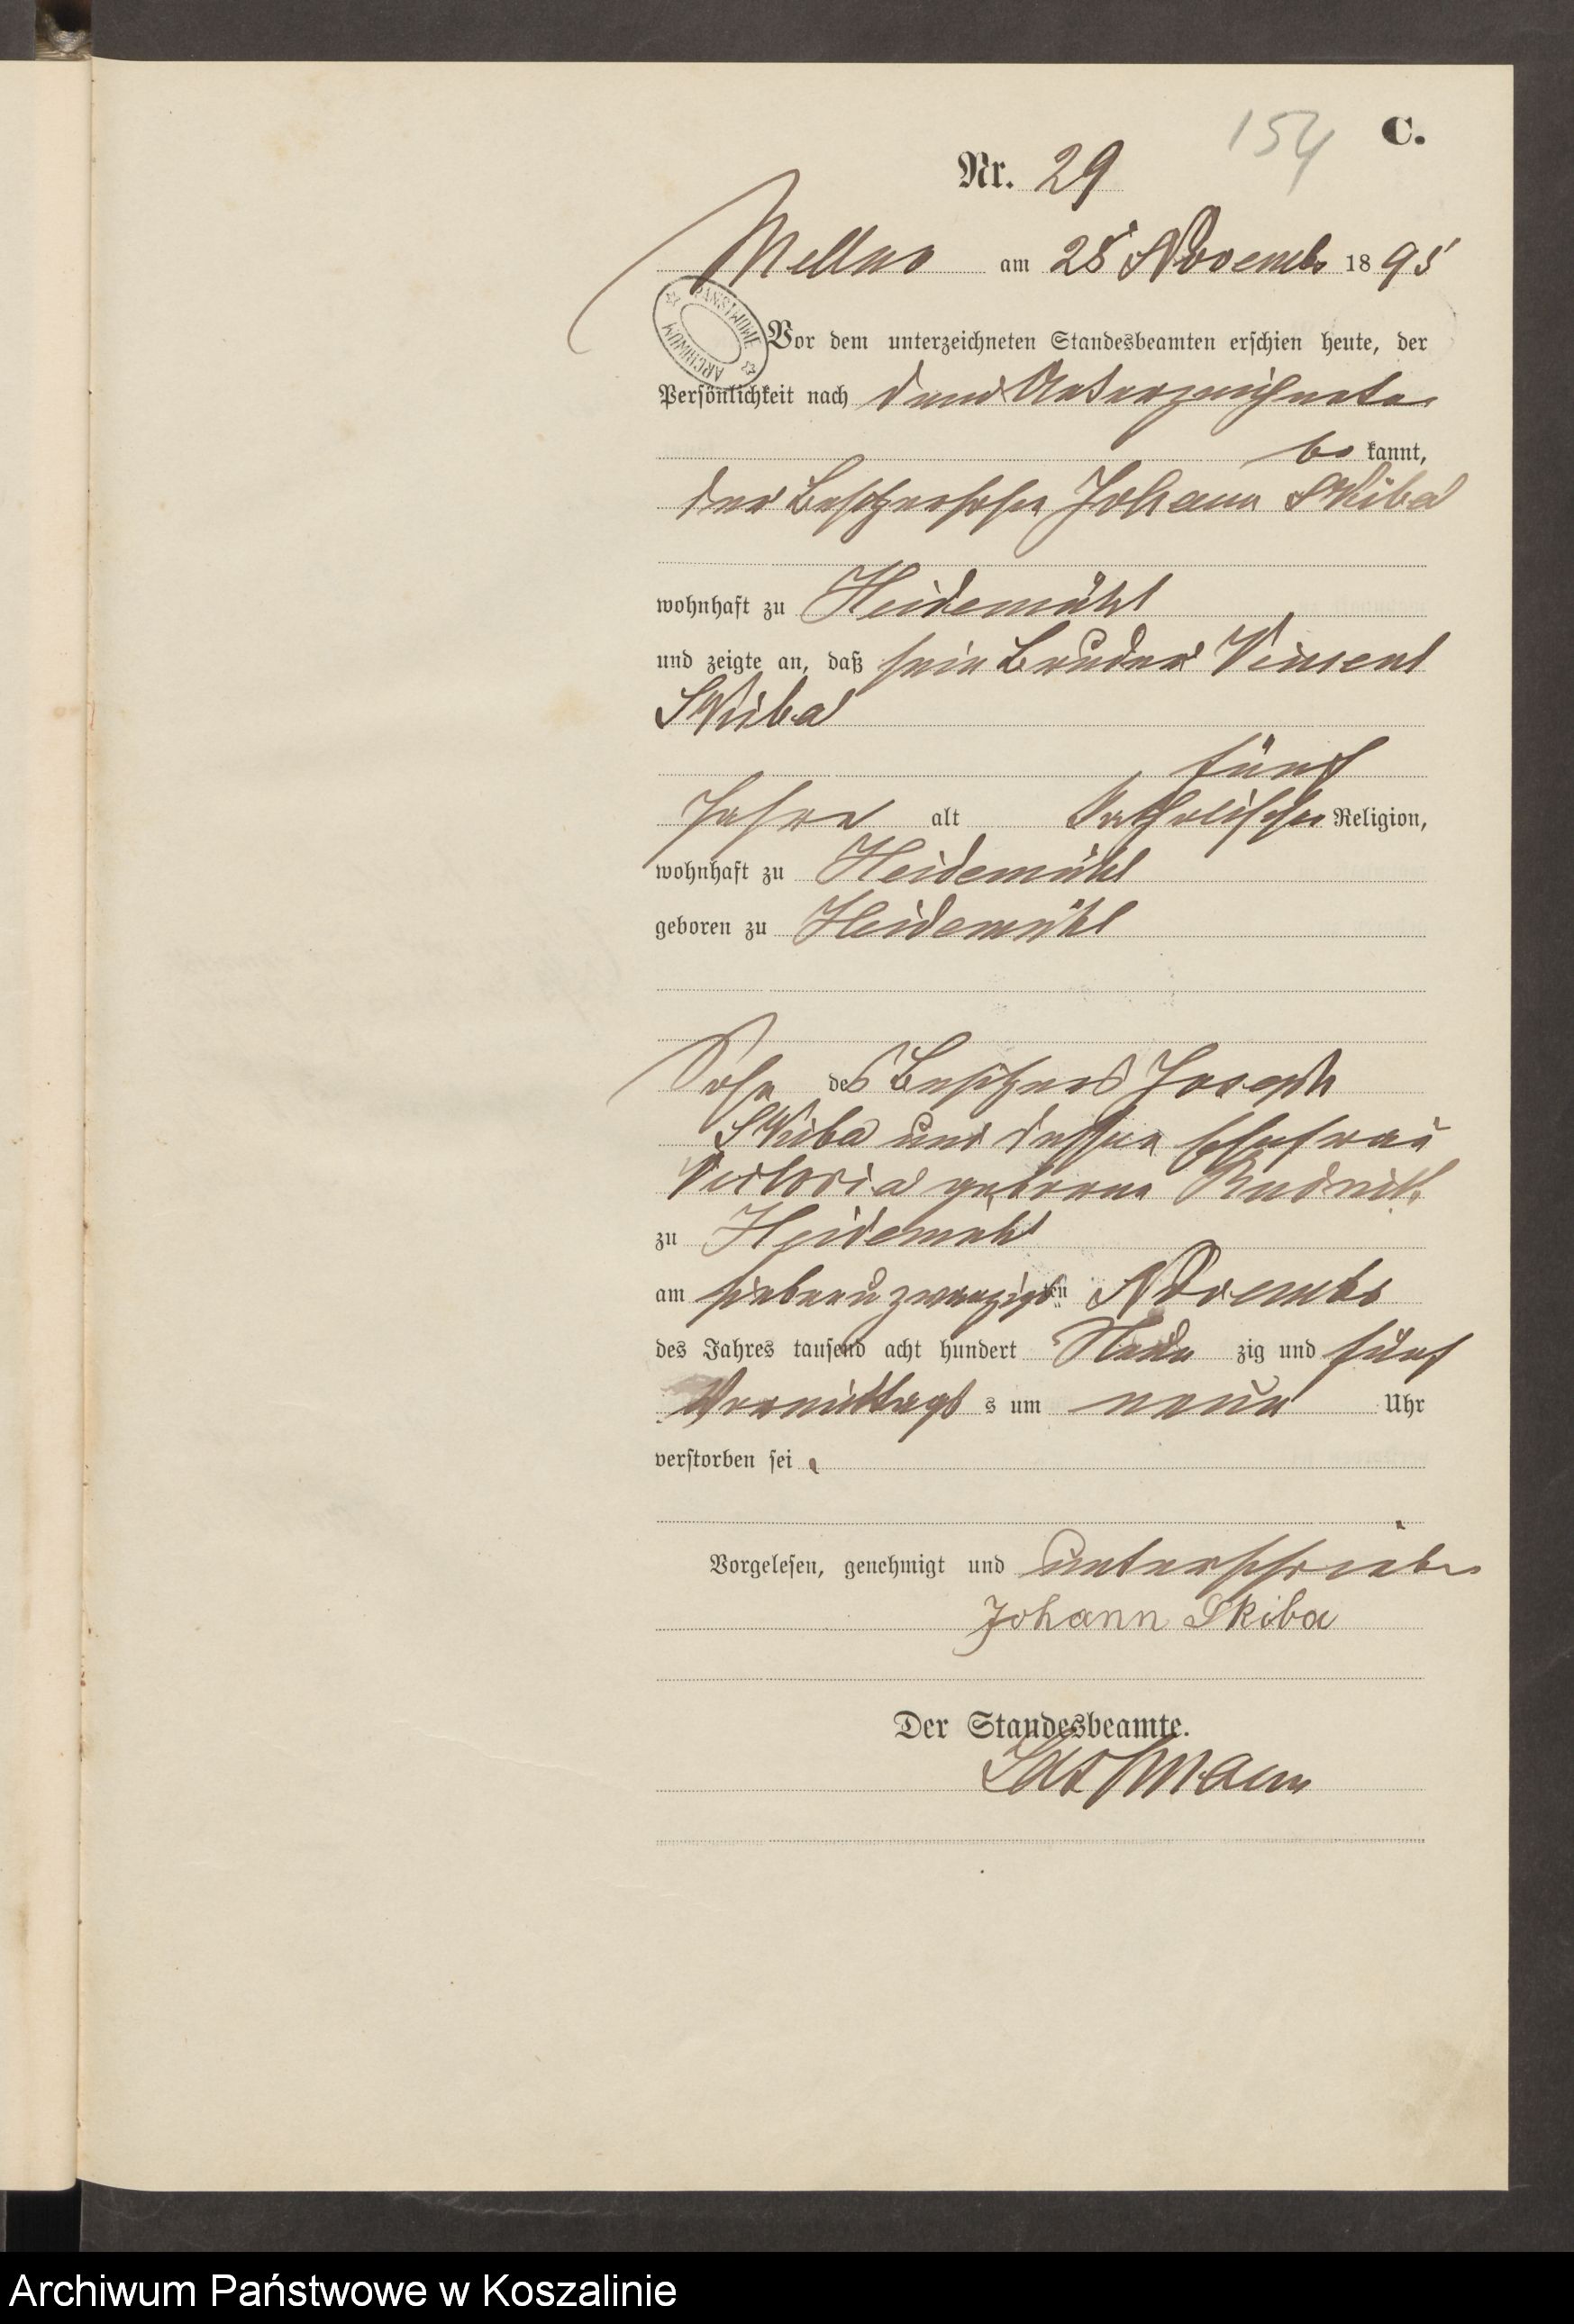 154 C.
Nr. 29
Mellno am 28 Novembr 1895
ARCHIWUM PAŃSTWOWE
Vor dem unterzeichneten Standesbeamten erschien heute, der
Persönlichkeit nach dem Unterzeichneten
be kannt,
der Besitzersohn Johann Skiba
wohnhaft zu Heidemühl
und zeigte an, daß sein Bruder Vincent
Skiba
fünf
Jahre alt katholischer Religion,
wohnhaft zu Heidemühl
geboren zu Heidemühl
Sohn des Besitzers Joseph
Skiba und dessen Ehefrau
Victoria geborene Rudnik
zu Heidemühl
am siebenundzwanzigsten Novembr
des Jahres tausend acht hundert Neun zig und fünf
Vormittags s um neun Uhr
verstorben sei.
Vorgelesen, genehmigt und unterschrieben
Johann Skiba
Der Standesbeamte.
Archiwum Państwowe w Koszalinie